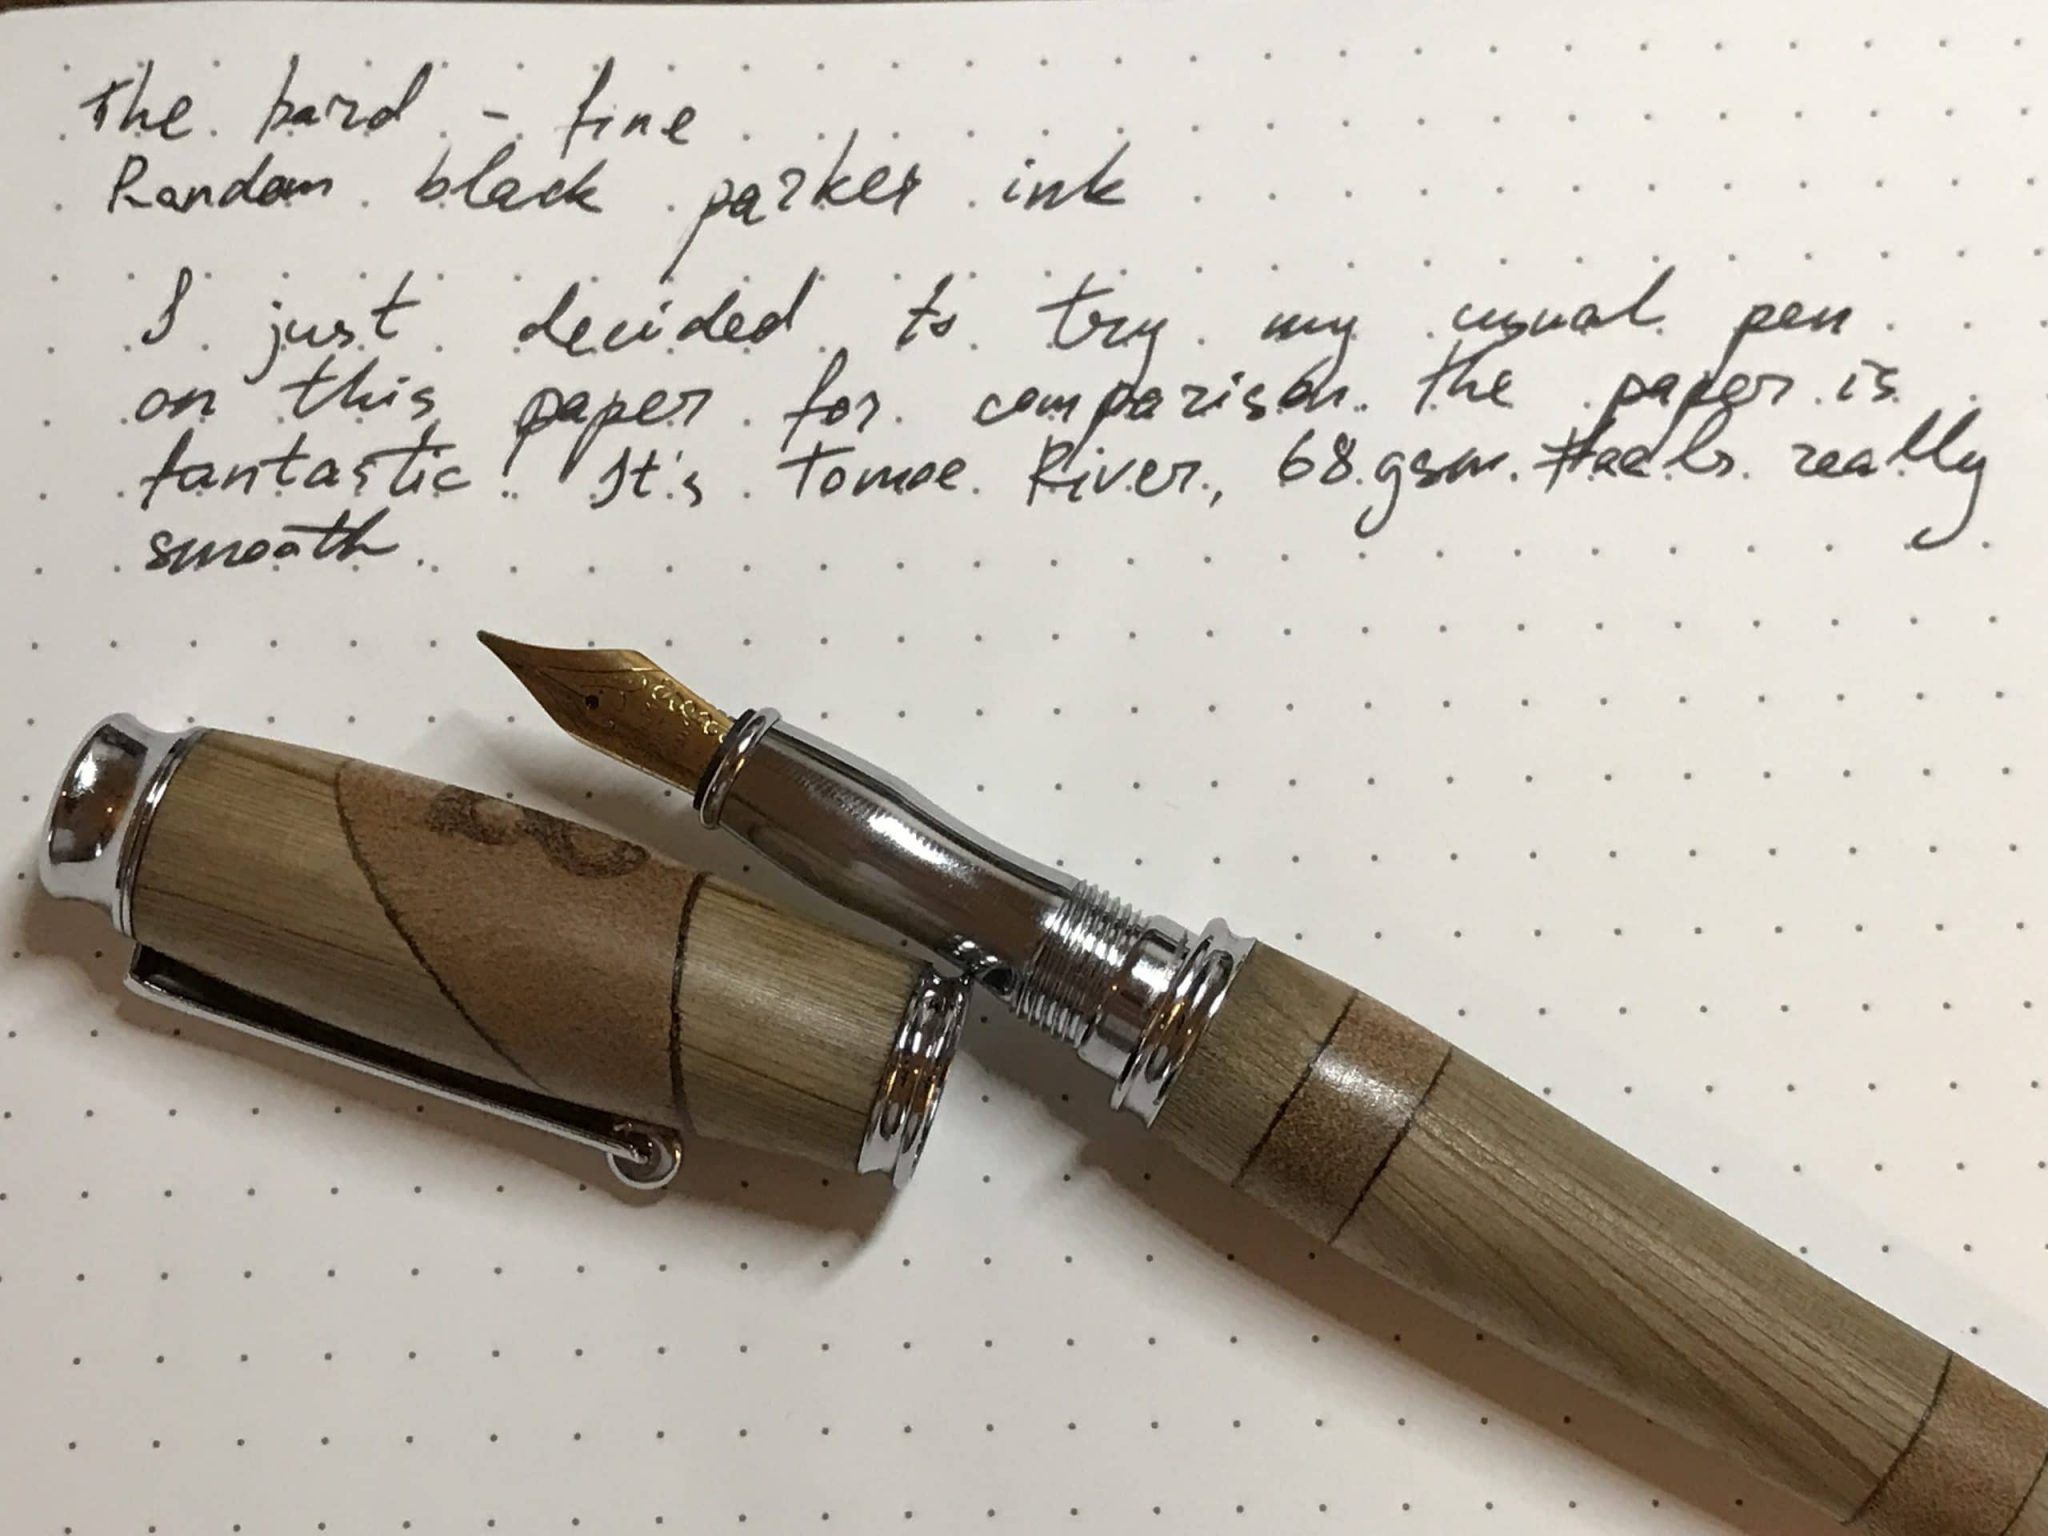 The bard - fine
Random black parker ink
I just decided to try my usual pen
on this paper for comparison. The paper is
fantastic! It's Tomoe River, 68 gsm. Feels really
smooth.